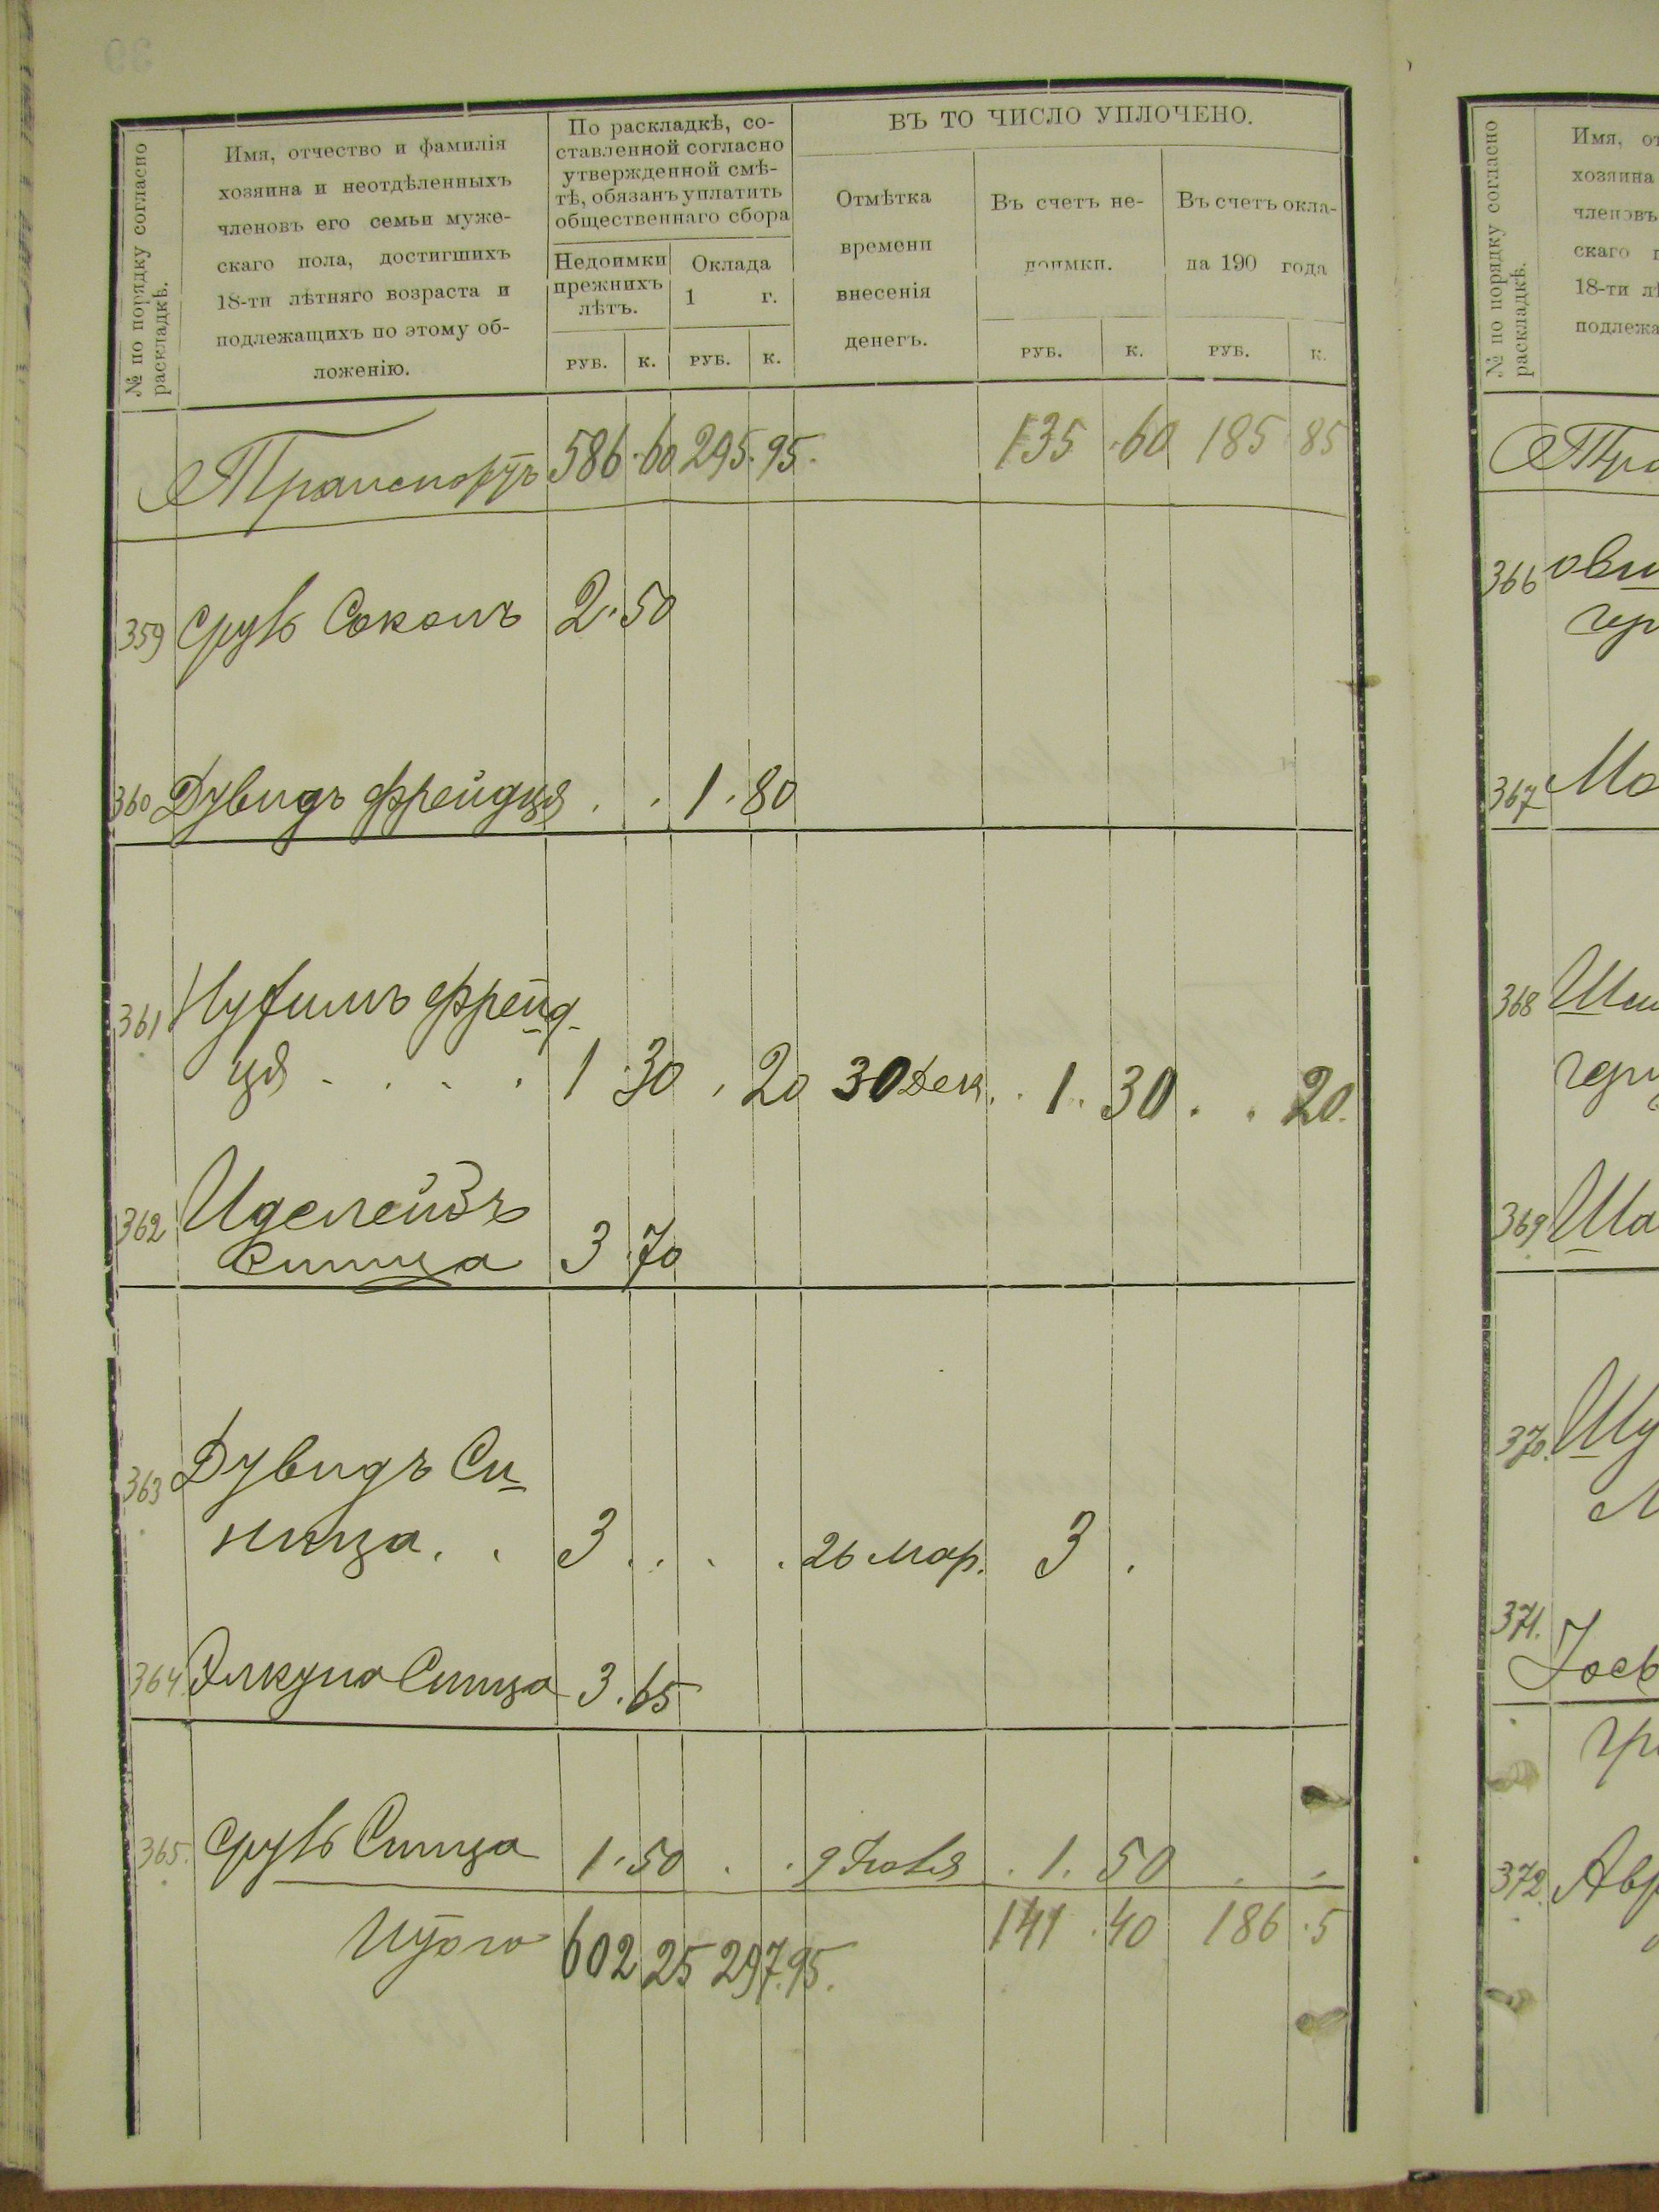 № по порядку согласно
раскладкѣ.
Имя, отчество и фамилія
хозяина и неотдѣленныхъ
членовъ его семьи муже-
скаго пола, достигшихъ
18-ти лѣтняго возраста и
подлежащихъ по этому об-
ложенію.
По раскладкѣ, со-
ставленной согласно
утвержденной смѣ-
тѣ, обязанъ уплатить
общественнаго сбора
Недоимки
прежнихъ
лѣтъ.
Оклада
1 г.
РУБ. К. РУБ. К.
ВЪ ТО ЧИСЛО УПЛОЧЕНО.
Отмѣтка
времени
внесенія
денегъ.
Въ счетъ не-
доимки.
Въ счетъ окла-
да 190 года
РУБ. К. РУБ. К.
Транспортъ 586 . 60 295 . 95 . 135 . 60 185 85
359 Сруль Соколъ 2 . 50
360 Дувидъ Фрейдця . . 1 . 80
361 Нухимъ Фрейд-
ця - . . . 1 30 . 20 30 Дек. . 1 . 30 . . 20.
362
Синица 3 . 70
363 Дувидъ Си-
ница . . 3 . . . . 26 Мар. 3 .
364. Элкуна Синица 3 . 65
365. Сруль Синица 1 . 50 . . 9 . 1 . 50 . .
Итого 602 25 297. 95. 141 . 40 186 . 5
№ по порядку согласно
раскладкѣ.
Имя, от
хозяина
членовъ
скаго п
18-ти лѣ
подлежа
Тра
366
367 Мо
368
369 Ша
370. Шу
371.
Іось
372. Авр